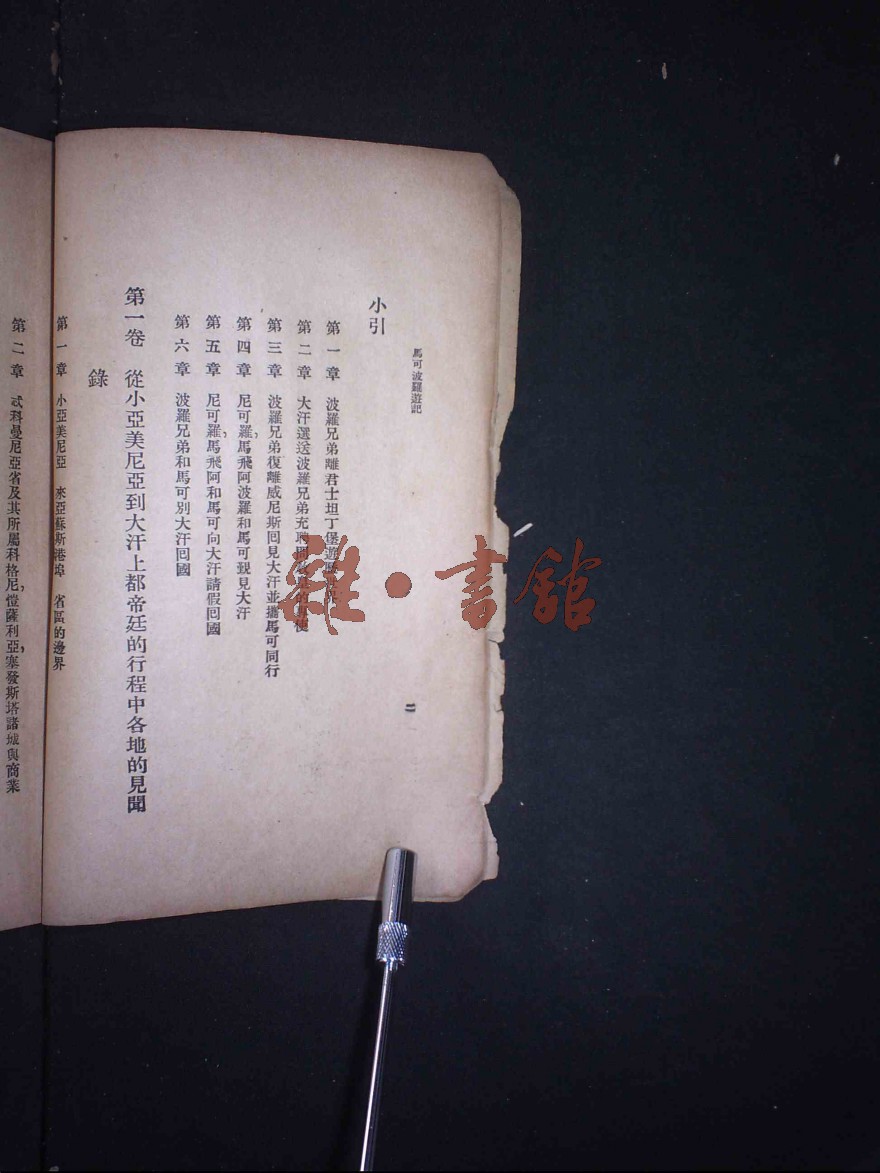 馬可波羅遊記
二
小引
第一章 波羅兄弟離君士坦丁堡遊歷世界
第二章 大汗選送波羅兄弟充聘問教皇的專使
第三章 波羅兄弟復離威尼斯回見大汗並攜馬可同行
第四章 尼可羅,馬飛阿波羅和馬可覲見大汗
第五章 尼可羅,馬飛阿和馬可向大汗請假回國
第六章 波羅兄弟和馬可別大汗回國
第一卷 從小亞美尼亞到大汗上都帝廷的行程中各地的見聞
錄
第一章 小亞美尼亞 來亞蘇斯港埠 省區的邊界
第二章 忒科曼尼亞省及其所屬科格尼,愷薩利亞,塞發斯塔諸城與商業
雜·書館